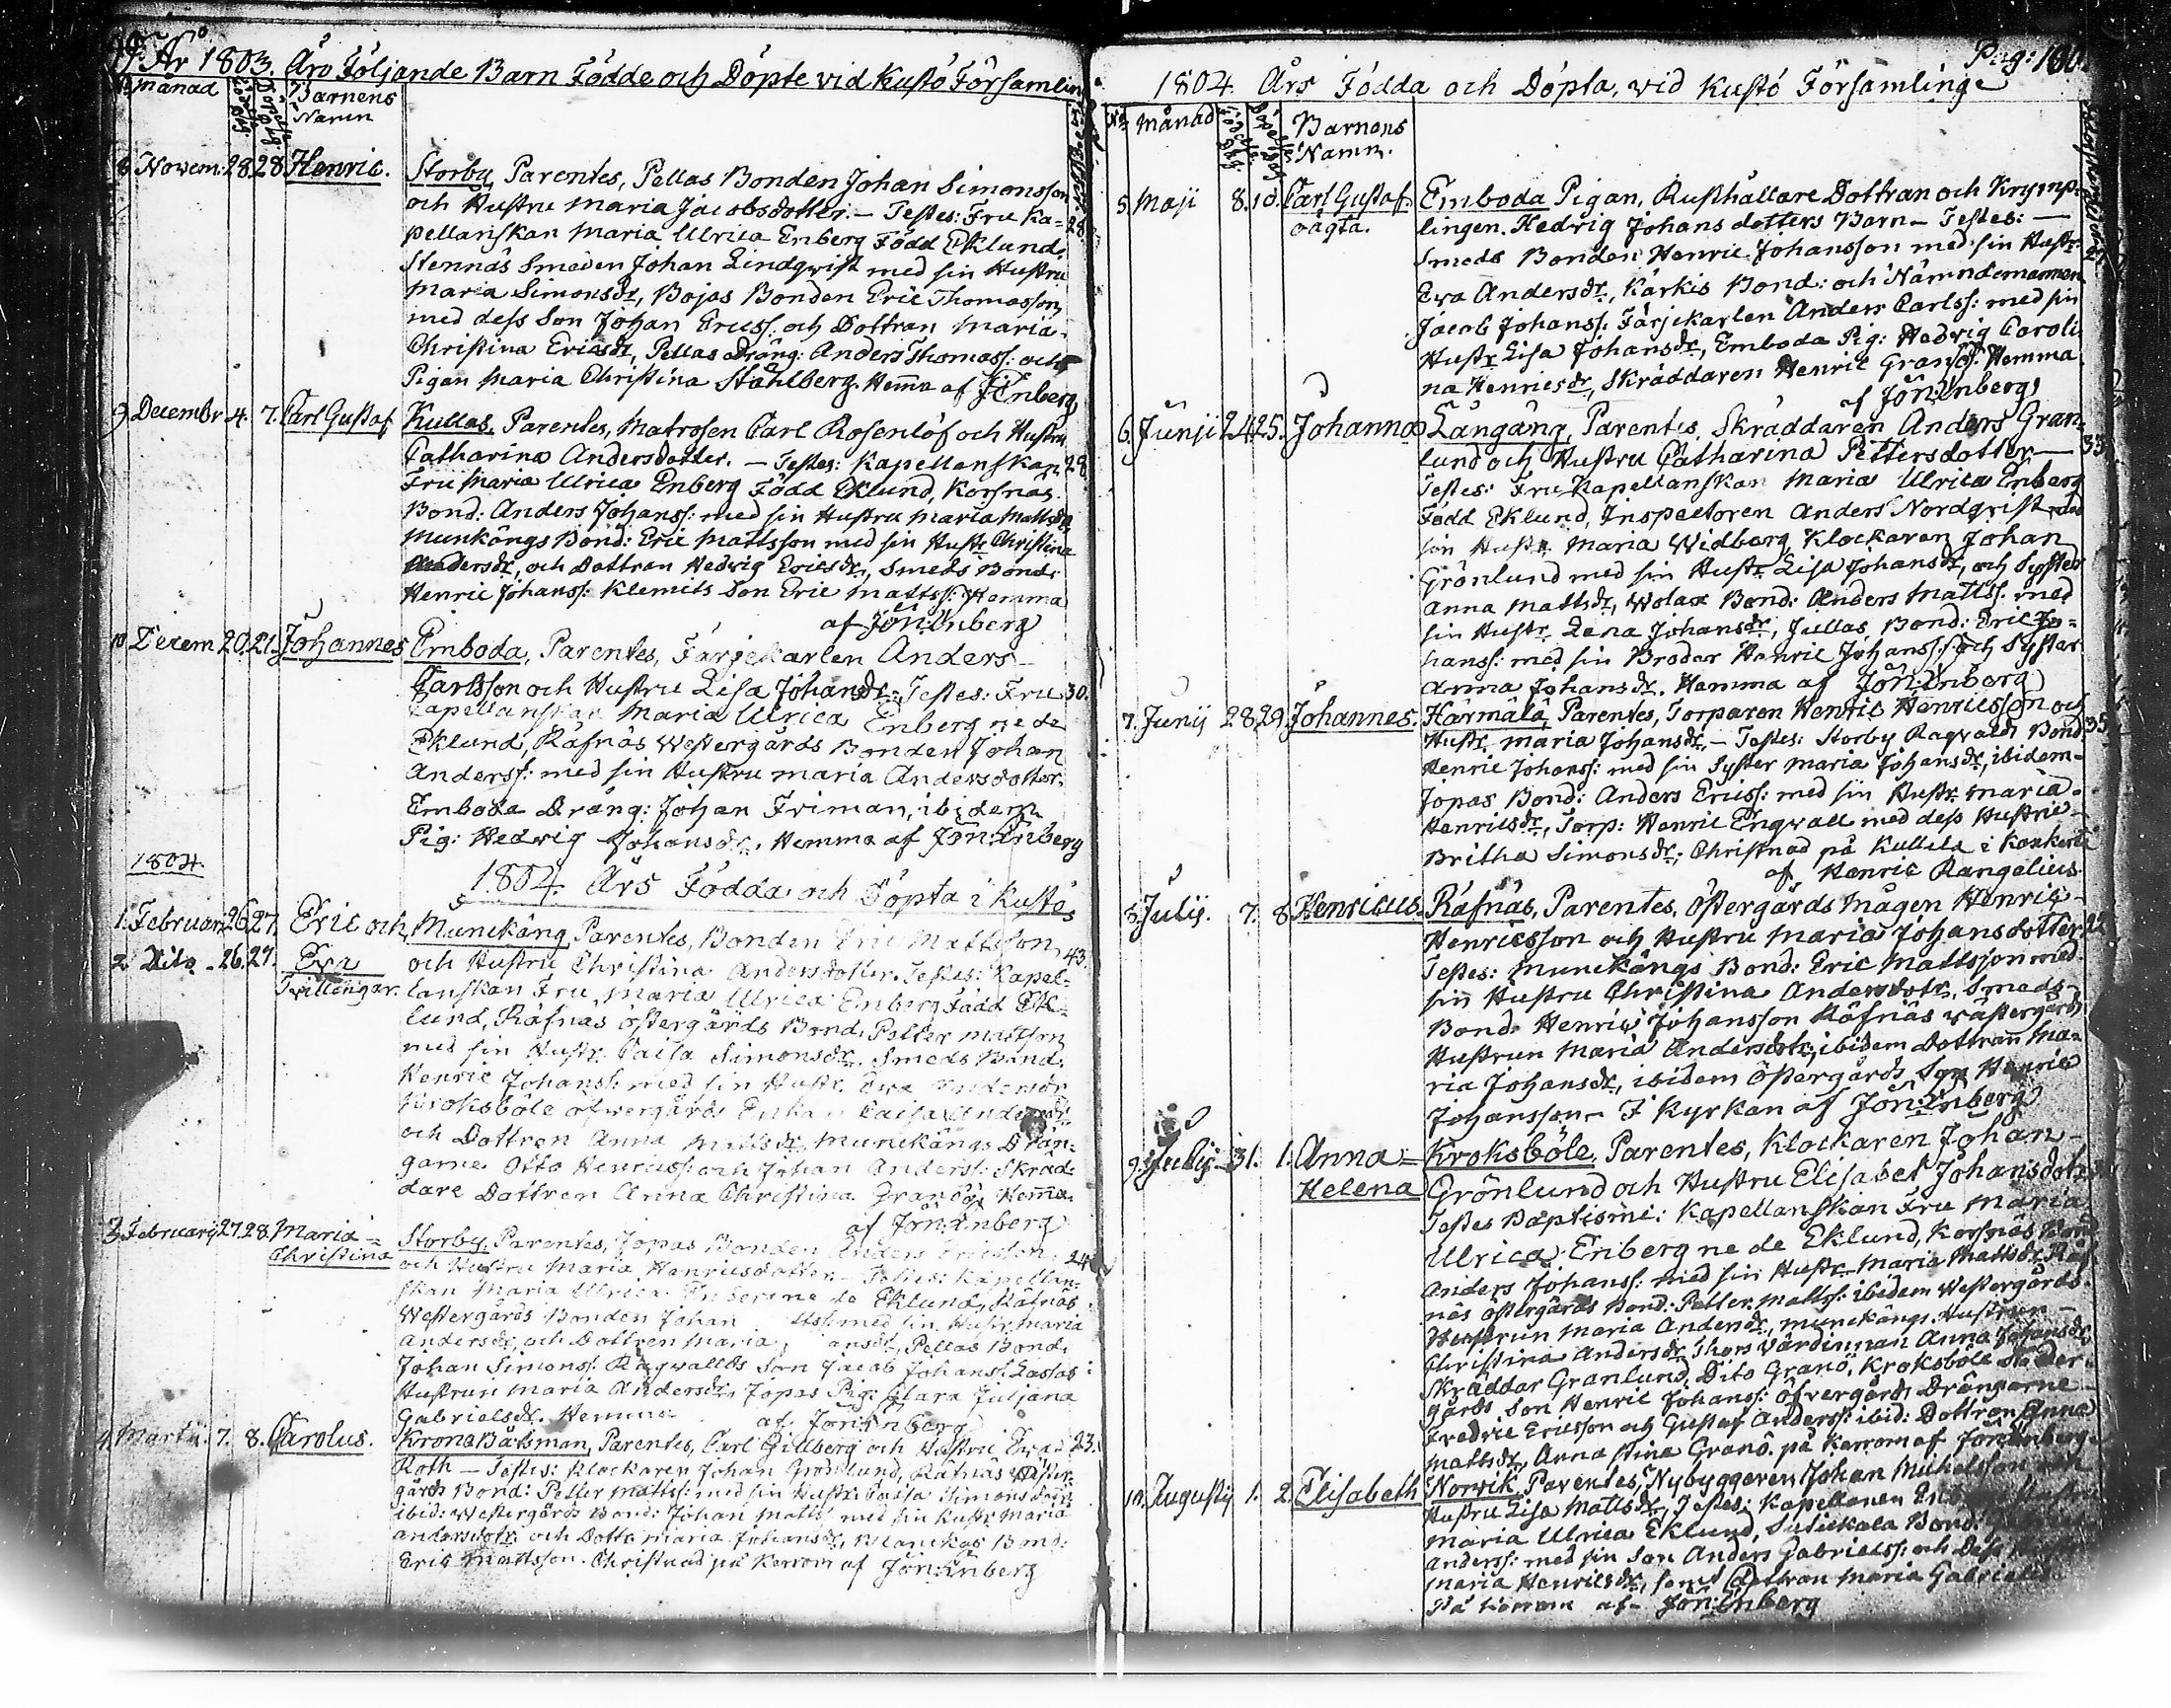 År 1803. Äro Följande Barn Födde och Döpte vid Kustö Församling
månad
Barnens
Namn
8 Novem: 28. 28. Henric. Storby, Parentes, Pellas Bonden Johan Simonsson
och Hustru Maria Jacobsdotter. – Testes: Fru Ka= 28.
pellanskan Maria Ulrica Enberg Född Eklund,
Stennäs Smeden Johan Lindqvist med sin Hustru
Maria Simonsdr, Bojas Bonden Eric Thomasson,
med dess Son Johan Ericss: och Dottran Maria
Christina Ericsdr, Pellas Dräng: Anders Thomass: och
Pigan Maria Christina Ståhlberg. Hemma af J Enberg
9 Decembr 4. 7. Carl Gustaf Kullas, Parentes, Matrosen Carl Rosenlöf och Hustru
Catharina Andersdotter. – Testes: Kapellanskan 28
Fru Maria Ulrica Enberg Född Eklund, Korsnäs
Bond: Anders Johanss: med sin Hustru Maria Mattsdr,
Munkängs Bond: Eric Mattsson med sin Hustr Christina
Andersdr, och Dottran Hedvig Ericsdr, Smeds Bond:
Henric Johanss: Klemits Son Eric Mattss: Hemma
af Jön: Enberg
10 Decem 20. 21. Johannes Emboda, Parentes, Färjekarlen Anders
Carlsson och Hustru Lisa Johansdr – Testes: Fru 30.
Kapellanskan Maria Ulrica Enberg ne de
Eklund, Räfnäs Westergårds Bonden Johan
Anderss: med sin Hustru Maria Andersdotter,
Emboda Dräng: Johan Friman, ibidem
Pig: Hedvig Johansdr, Hemma af Jön: Enberg
1804.
1804. Års Födda och Döpta i Kustö
1. Februari 26. 27. Eric och Munckäng Parentes, Bonden Eric Mattsson
2 Dito 26. 27. Eva och Hustru Christina Andersdotter. Testes: Kapel= 43.
Tvillingar. lanskan Fru Maria Ulrica Enberg Född Ek=
lund, Räfnas Östergårds Bond: Petter Mattson
med sin Hustr. Caisa Simonsdr. Smeds Bond:
Henric Johanss: med sin Hustr. Eva Andersdr
Kroksböle Öfvergårds Enkan Caisa Andersdr
och Dottran Anna Mattsdr, Munckängs Drän=
garne Otto Henricss: och Johan Anderss: Skräd=
dare Dottren Anna Christina Granö. Hemma
af Jön: Enberg
3. Februarij 27. 28. Maria= Storby, Parentes, Jopas Bonden Anders Ericsson
Christina och Hustru Maria Henricsdotter – Testes: Kapellan= 24
skan Maria Ulrica Enberg ne de Eklund, Räfnäs
Westergårds Bonden Johan med sin Hustr. Maria
Andersdr, och Dottren Maria Pellas Bond:
Johan Simonss: Ragvallds Son Jacob Johanss: Lassas
Hustrun Maria Andersdr, Jopas Pig: Clara Juljana
Gabrielsdr. Hemma af Jön: Enberg
4. Martii. 7. 8. Carolus. Krono Båtsman, Parentes, Carl Gillberg och Hustru Eva 23.
Roth – Testes: Klockaren Johan Grönlund, Räfnäs Öster
gårds Bond: Petter Mattss: med sin Hustr. Caisa Simonsdotr
ibid: Westergårds Bond: Johan Mattss med sin Hustr Maria
Andersdotr och Dottr Maria Johansdr, Blanckas Bond:
Eric Mattsson. Christnad på Kerrom af Jön: Enberg
Pag:
1804. Års Födda och Döpta, vid Kustö Församlinge
månad
Barnens
Namn.
5. Maji 8. 10. Carl Gustaf Emboda Pigan, Rusthållare Dottran och Krymp=
oägta. lingen. Hedvig Johans dotters Barn – Testes: –
Smeds Bonden Henric Johansson med sin Hustr:
Eva Andersdr, Kärkis Bond: och Nämndemannen
Jacob Johanss: Färjekarlen Anders Carlss: med sin
Hustr Lisa Johansdr, Emboda Pig: Hedvig Caroli
na Henricsdr, Skräddaren Henric Granö. Hemma
af Jön: Enberg
6. Junji 24. 25. Johanna Långäng, Parentes, Skräddaren Anders Gran=
lund och Hustru Catharina Pettersdotter – 33
Testes: Fru Kapellanskan Maria Ulrica Enberg
Född Eklund, Inspectoren Anders Nordqvist med
sin Hustr Maria Widberg Klockaren Johan
Grönlund med sin Hustr Lisa Johansdr, och Syster
Anna Mattsdr, Wolax Bond: Anders Mattss: med
sin Hustr Lena Johansdr, Jullas Bond: Eric Jo=
hanss: med sin Broder Henric Johanss: och Syster
Anna Johansdr. Hemma af Jön: Enberg
7. Junij 28. 29. Johannes. Härmälä, Parentes, Torparen Henric Henricsson och
Hustr Maria Johansdr, – Testes: Storby Ragvalds Bond 35
Henric Johanss: med sin Syster Maria Johansdr, ibidem
Jopas Bond: Anders Ericss: med sin Hustr Maria
Henricsdr, Torp: Henric Engvall med dess Hustru
Britha Simonsdr; Christnad på Kullela i Kankerte
af Henric Rangelius
8. Julij. 7. 8 Henricus. Räfnäs, Parentes, Östergårds Mågen Henric
Henricsson och Hustru Maria Johansdotter 22
Testes: Munckängs Bond: Eric Mattsson med
sin Hustru Christina Andersdotr, Smeds
Bond: Henric Johansson Räfnäs Wästergårds
Hustrun Maria Andersdotr, ibidem Dottran Ma=
ria Johansdr, ibidem Östergårds Son Henric
Johansson – I Kyrkan af Jön: Enberg
9. Julij 31. 1. Anna= Kroksböle, Parentes, Klockaren Johan
Helena Grönlund och Hustru Elisabet Johansdotr
Testes Baptismi: Kapellanskan Fru Maria
Ulrica Enberg ne de Eklund, Korsnäs Bond
Anders Johanss: med sin Hustr Maria Mattsdr Räf
näs Östergårds Bond: Petter Mattss: ibidem Westergårds
Hustrun Maria Andersdr, Munckängs Hustrun
Christina Andersdr Thors Värdinnan Anna Johansdr,
Skräddar Granlund, Dito Granö, Kroksböle Nåder
gårds Son Henric Johanss: Öfvergårds Drängarne
Fredric Ericsson och Gustaf Anderss: ibid: Dottran Anna
Mattsdr, Anna Stina Granö. på Kerrom af Jön: Enberg
10. Augustij 1. 2. Elisabeth Norvik, Parentes, Nybyggaren Johan Michelsson och
Hustru Lisa Mattsdr, Testes: Kapellanen
Maria Ulrica Eklund, Bond:
Anderss: med sin Son Anders Gabrielss: och Dess
Maria Henricsdr, samt Dottran Maria Gabriels
På Kerrom af Jön: Enberg